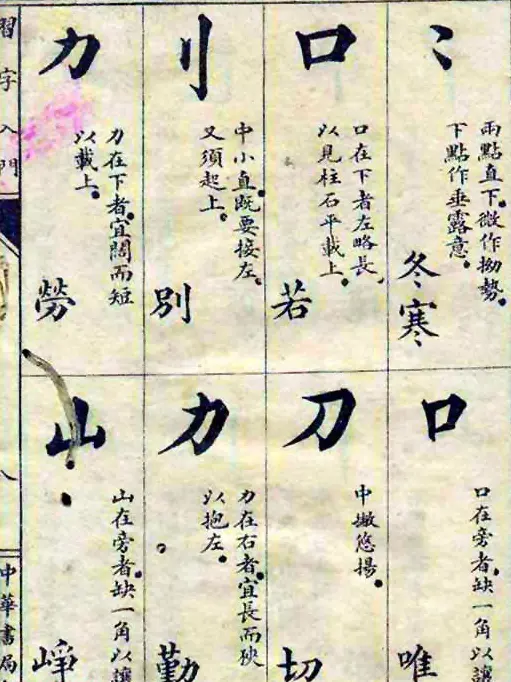 ⺀
兩點直下。微作拗勢。
下點作垂露意。
冬寒
口
口在下者左略長。
以見柱石平載上。
若
刂
中小直。既要接左。
又須起上。
別
力
力在下者。宜闊而短
以載上。
勞
口
口在旁者。缺一角以讓
唯
刀
中撇悠揚。
切
力
力在右者。宜長而狹
以抱左。
勤
山
山在旁者。缺一角以讓
崢
習字入門
八
中華書局